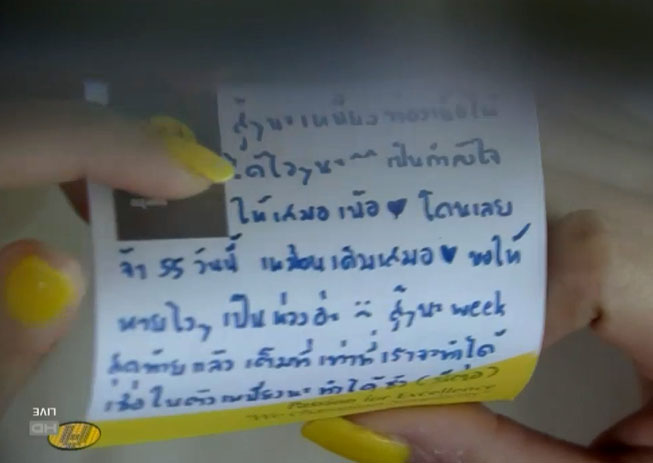 สู้ๆนะเหมียว
ได้ไวๆนะ ^^ เป็นกำลังใจ
ให้เสมอ ♥ โดนเลย
จ้า 55 วันนี้ เหมือนเดิมเสมอ ♥ ขอให้
หายไวๆ เป็นห่วงอ่ะ ^^ สู้ๆนะ week
สุดท้ายแล้ว เต็มที่เท่าที่เราจะทำได้
เชื่อในตัวเหมียวนะ ทำได้ชัว
Passion for Excellence
LIVE
HD
H